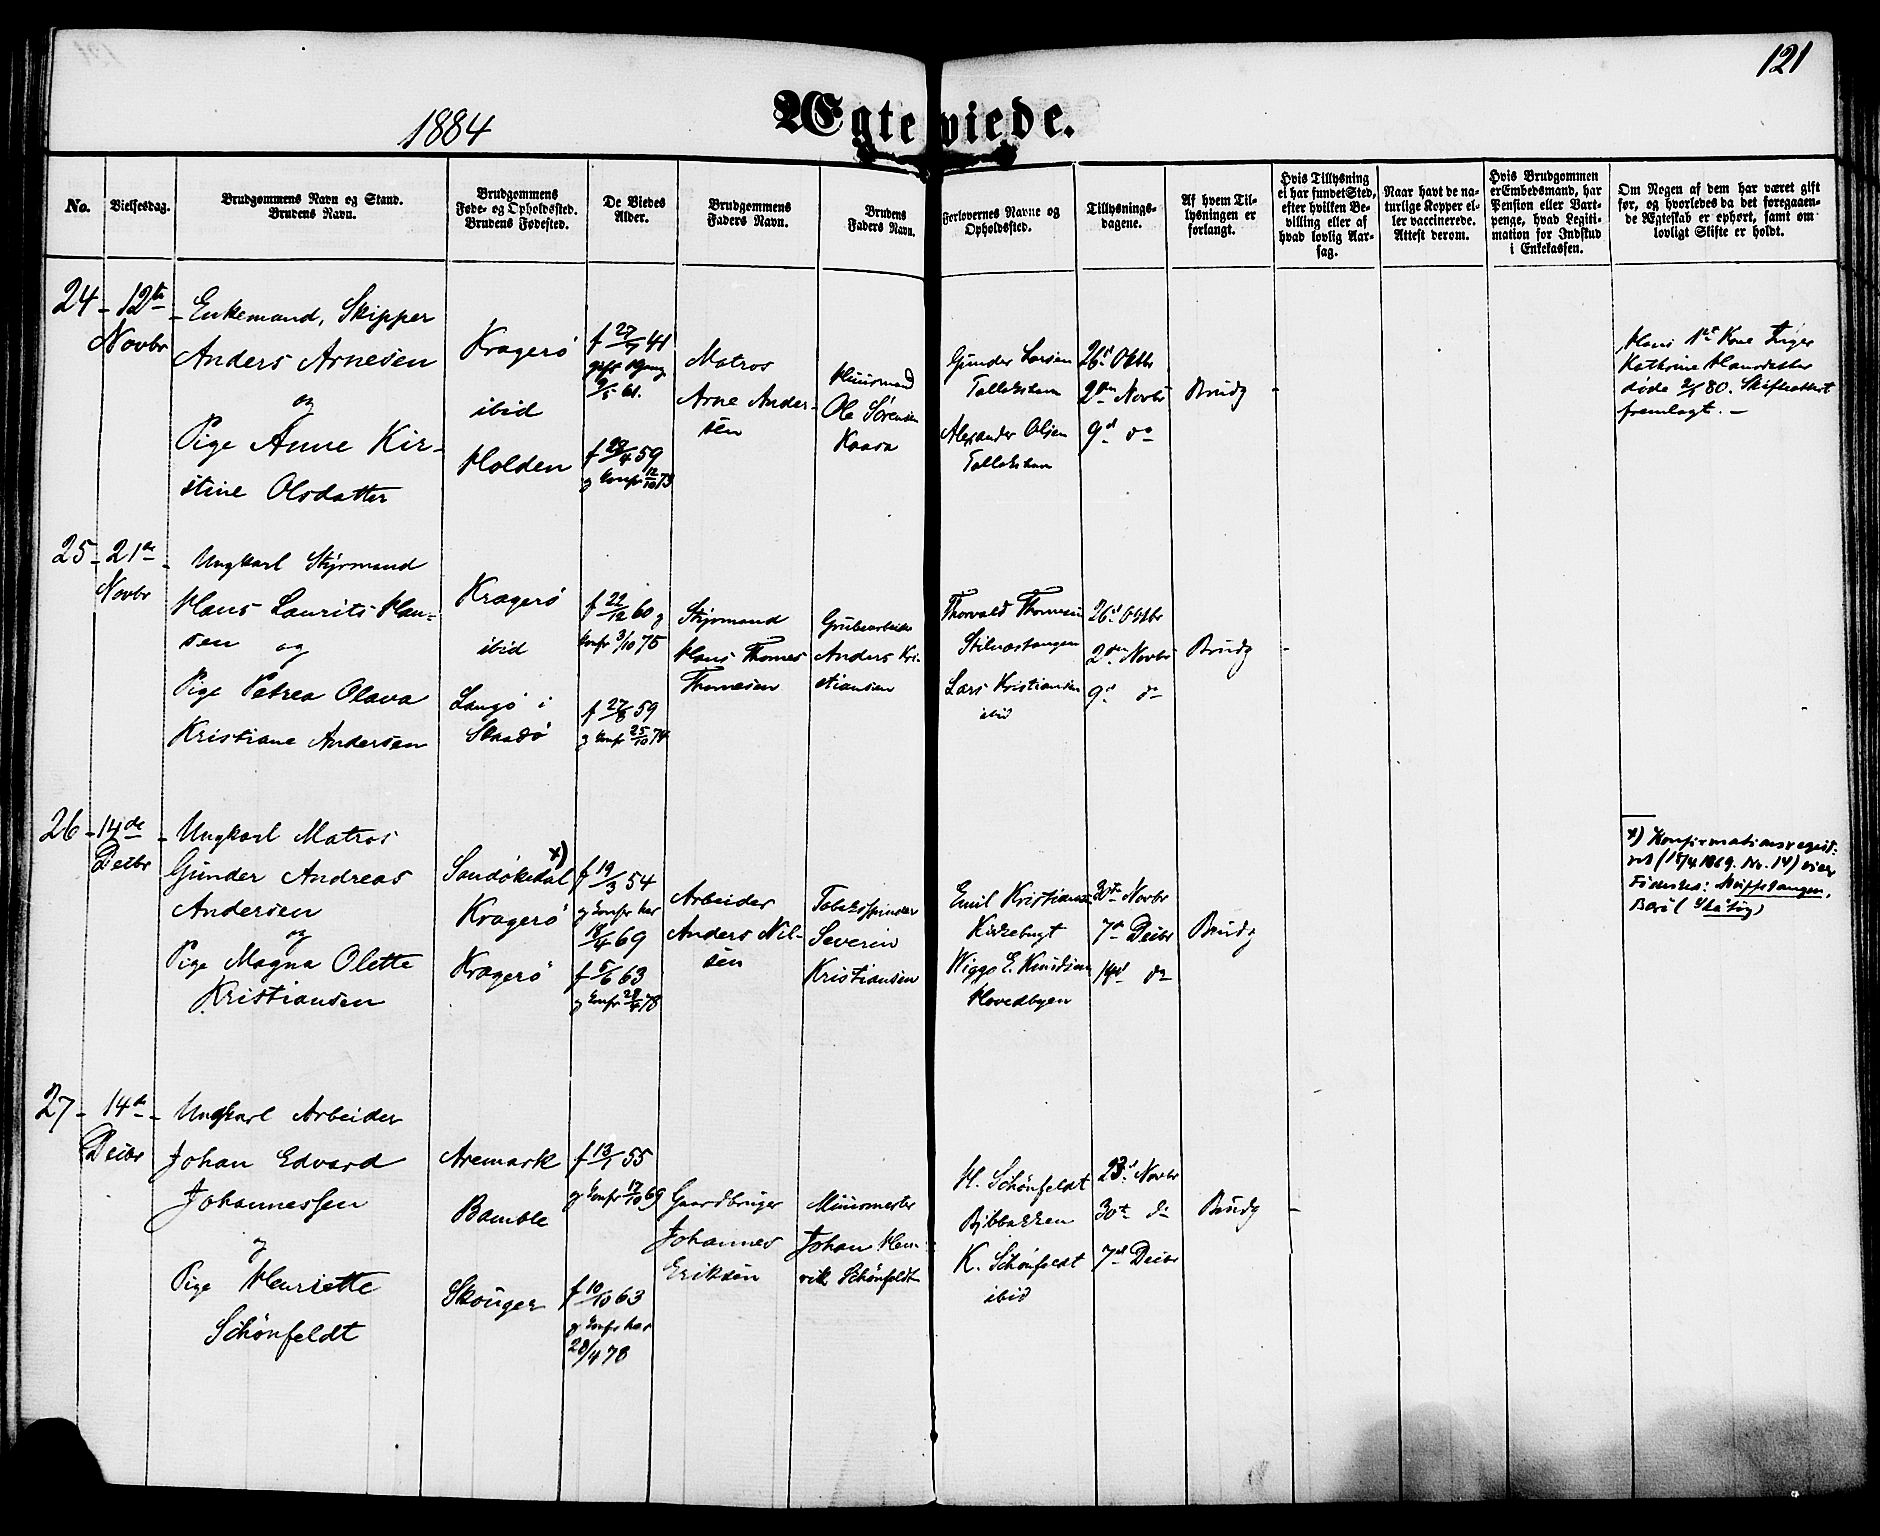 121
1884
Ægteviede.
No.
Vielsesdag.
Brudgommens Navn og Stand.
Brudens Navn.
Brudgommens
Føde- og Opholdssted.
Brudens Fødested.
De Viedes
Alder.
Brudgommens
Faders Navn.
Brudens
Faders Navn.
Forlovernes Navne og
Opholdssted.
Tillysnings-
dagene.
Af hvem Til-
lysningen er
forlangt.
Hvis Tillysning
ei har fundet Sted,
efter hvilken Be-
villing eller af
hvad lovlig Aar-
sag.
Naar havt de na-
turlige Kopper el-
ler vaccinerede.
Attest derom.
Hvis Brudgommen
er Embedsmand, har
Pension eller Vart-
penge, hvad Legiti-
mation for Indskud
i Enkekassen.
Om Nogen af dem har været gift
før, og hvorledes da det foregaaen-
de Ægteskab er ophørt, samt om
lovligt Skifte er holdt.
24 - 12te
Novbr
Enkemand, Skipper
Anders Arnesen
og
Pige Anne Kir-
stine Olsdatter
Kragerö
ibid
Holden
f 27/7 41
9/5 61.
f 29/4 59
g konfr 12/10 73
Matros
Arne Ander-
sen
Huusmand
Ole Sörensen
Kaasa
Gunder Larsen
Tallakshavn
Alexander Olsen
Tallakshavn
26d Oktbr
2den Novbr
9d do
Brudg -
Hans 1ste Kone Inger
Kathrine Hansdatter
döde 2/1 80. Skifteattest
fremlagt. -
25 - 21de
Novbr
Ungkarl Styrmand
Hans Laurits Han-
sen og
Pige Petrea Olava
Kristiane Andersen
Kragerö
ibid
Langö i
Skaadö
f 22/12 60 g
konfr 3/10 75
f 27/8 59
g konfr 25/10 74
Styrmand
Hans Thomas
Thomesen
Grubearbeider
Anders Kri-
stiansen
Thorvald Thomesen
Stilnestangen
Lars Kristiansen
ibid
26d Oktbr
2den Novbr
9d do
Brudg -
26 - 14de
Decbr
Ungkarl Matros
Gunder Andreas
Andersen
og
Pige Magna Olette
Kristiansen
Sandökedal x)
Kragerö
Kragerö
f 19/3 54
g konfr her
18/4 69
f 5/6 63
g konfr 28/4 78
Arbeider
Anders Nil-
sen
Tobaksspinder
Severin
Kristiansen
Emil Kristiansen
Kirkebugt
Wiggo E. Knudsen
Hovedbyen
30te Novbr
7d Decbr
14d do
Brudg
x) Konfirmationsregist-
ret (18/4 1869. Nr. 14) viser
Fødested:
Baröl
27 - 14de
Decbr
Ungkarl Arbeider
Johan Edvard
Johannessen
og
Pige Henriette
Schönfeldt
Aremark
Bamble
Skouger
f 13/1 55
g konfr 17/10 69
f 10/10 63
g konfr her
28/4 78
Gaardbruger
Johannes
Eriksen
Muurmester
Johan Hen-
rik Schönfeldt
H. Schönfeldt
K. Schönfeldt
ibid
23d Novbr
30te do
7d Decbr
Brudg -